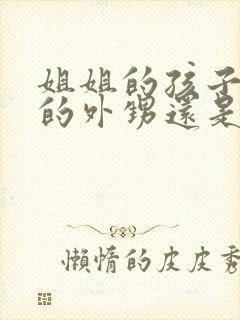 姐姐的孩子
的外甥還是
懶惰的皮皮秀